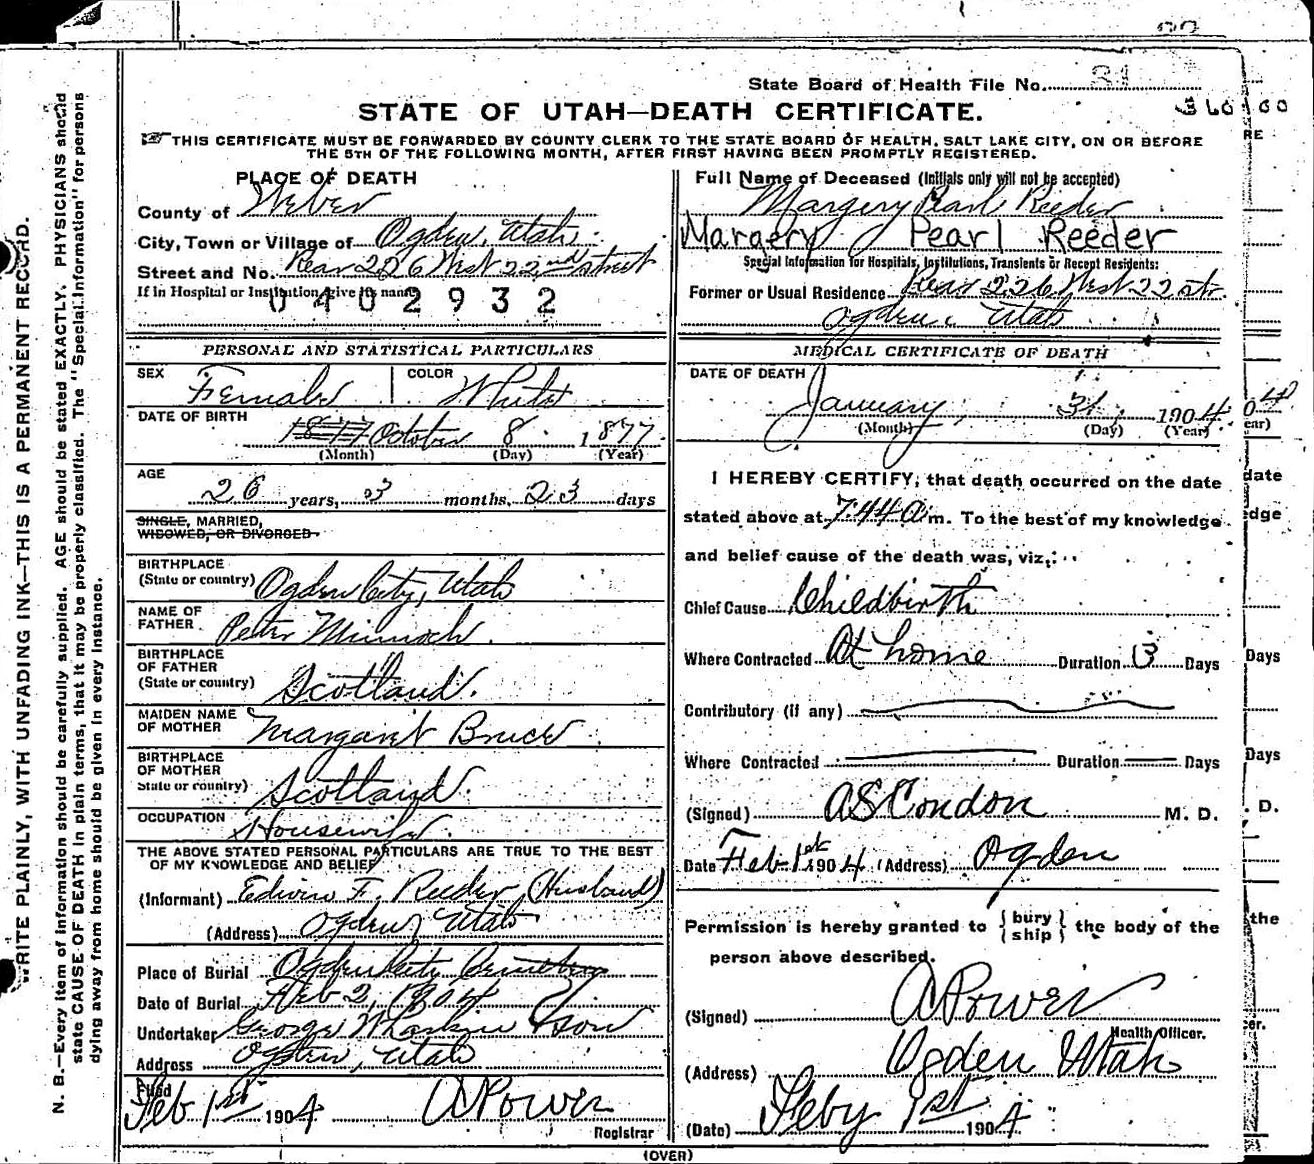 State Board of Health File No. 31
STATE OF UTAH—DEATH CERTIFICATE.
THIS CERTIFICATE MUST BE FORWARDED BY COUNTY CLERK TO THE STATE BOARD OF HEALTH, SALT LAKE CITY, ON OR BEFORE
THE 5TH OF THE FOLLOWING MONTH, AFTER FIRST HAVING BEEN PROMPTLY REGISTERED.
PLACE OF DEATH
County of Weber
City, Town or Village of Ogden, Utah
Street and No. Rear 226 West 22nd street
If in Hospital or Institution give its name
0402932
Full Name of Deceased (Initials only will not be accepted)
Margery Pearl Reeder
Margery Pearl Reeder
Special Information for Hospitals, Institutions, Transients or Recept Residents:
Former or Usual Residence Rear 226 West 22 str.
Ogden Utah
PERSONAL AND STATISTICAL PARTICULARS
SEX Female COLOR White
DATE OF BIRTH
October 8 1877
(Month) (Day) (Year)
AGE
26 years, 3 months, 23 days
SINGLE, MARRIED,
WIDOWED, OR DIVORCED
BIRTHPLACE
(State or country) Ogden City, Utah
NAME OF
FATHER Peter Minnoch
BIRTHPLACE
OF FATHER
(State or country) Scotland.
MAIDEN NAME
OF MOTHER Margaret Bruce
BIRTHPLACE
OF MOTHER
State or country) Scotland.
OCCUPATION Housewife
THE ABOVE STATED PERSONAL PARTICULARS ARE TRUE TO THE BEST
OF MY KNOWLEDGE AND BELIEF
(Informant) Edwin F. Reeder (Husband)
(Address) Ogden Utah
Place of Burial Ogden City Cemetery
Date of Burial Feb 2, 1904
Undertaker George W Larkin & son
Address Ogden, Utah
Filed
Feb 1st 1904 A Power
Registrar
MEDICAL CERTIFICATE OF DEATH
DATE OF DEATH
January 31, 1904
(Month) (Day) (Year)
I HEREBY CERTIFY, that death occurred on the date
stated above at 7:44 a m. To the best of my knowledge
and belief cause of the death was, viz,:
Chief Cause Childbirth
Where Contracted At home Duration 3 Days
Contributory (if any)
Where Contracted Duration Days
(Signed) AS Condon M. D.
Date Feb 1st 1904 (Address) Ogden
Permission is hereby granted to { bury ship } the body of the
person above described.
(Signed) A Power
Health Officer.
(Address) Ogden Utah
(Date) Feby 1st 1904
(OVER)
WRITE PLAINLY, WITH UNFADING INK—THIS IS A PERMANENT RECORD.
N. B.—Every item of information should be carefully supplied. AGE should be stated EXACTLY. PHYSICIANS should
state CAUSE OF DEATH in plain terms, that it may be properly classified. The "Special Information" for persons
dying away from home should be given in every instance.
RE
ear)
date
edge
Days
Days
D.
the
er.